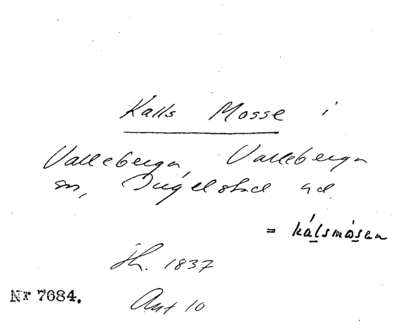 Kalls Mosse i
Valleberga, Valleberga
sn, Ingelstad hd.
= kálsmósen
Jh. 1837
Nr 7684.
Ant 10